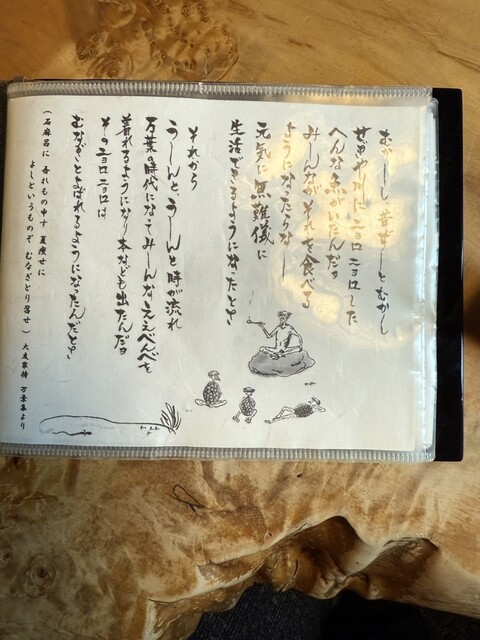 むかーし 昔ずーとむかし
せきや川にニョロニョロした
へんな魚がいたんだョ
みんながそれを食べる
ようになったらなー
元気に無難儀に
生活できるようになったとさ
それから
うーんと、うーんと時が流れ
万葉の時代になってみーんなええべべを
着れるようになり本なども出たんだョ
そのニョロニョロは
むなぎとよばれるようになったんだとさ
(石麻呂に 吾れもの申す 夏痩せに
よしというものぞ むなぎとり召せ) 大友家持 万葉集より